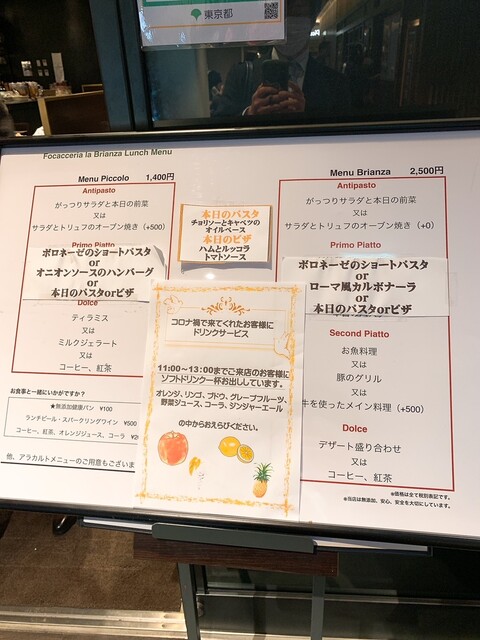 東京都
Focacceria la Brianza Lunch Menu
Menu Piccolo 1,400円
Antipasto
がっつりサラダと本日の前菜
又は
サラダとトリュフのオーブン焼き（+500）
Primo Piatto
ボロネーゼのショートパスタ
or
オニオンソースのハンバーグ
or
本日のパスタorピザ
Dolce
ティラミス
又は
ミルクジェラート
又は
コーヒー、紅茶
お食事と一緒にいかがですか？
★無添加健康パン ¥100
ランチビール・スパークリングワイン ¥500
コーヒー、紅茶、オレンジジュース、コーラ
他、アラカルトメニューのご用意もございま
本日のパスタ
チョリソーとキャベツの
オイルベース
本日のピザ
ハムとルッコラ
トマトソース
コロナ禍で来てくれたお客様に
ドリンクサービス
11:00～13:00までご来店のお客様に
ソフトドリンク一杯お出ししています。
オレンジ、リンゴ、ブドウ、グレープフルーツ、
野菜ジュース、コーラ、ジンジャーエール
の中からおえらびください。
Menu Brianza 2,500円
Antipasto
がっつりサラダと本日の前菜
又は
サラダとトリュフのオーブン焼き（+0）
Primo Piatto
ボロネーゼのショートパスタ
or
ローマ風カルボナーラ
or
本日のパスタorピザ
Second Piatto
お魚料理
又は
豚のグリル
又は
牛を使ったメイン料理（+500）
Dolce
デザート盛り合わせ
又は
コーヒー、紅茶
※価格は全て税別表記です。
※当店は無添加、安心、安全を大切にしています。